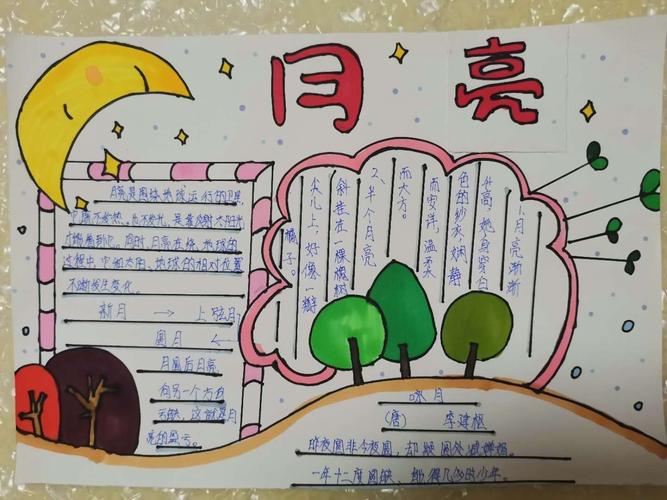 月亮
月亮是围绕地球运行的卫星
它既不发热，也不发光，是靠反射太阳光
才能看到它。同时，月亮在绕地球的
过程中，它和太阳、地球的相对位置
不断发生变化。
新月 → 上弦月
圆月 ←
月圆后月亮
向另一个方向
亏缺，这就是月
亮的盈亏。
1、月亮渐渐
升高，她身穿白
色的纱衣，娴静
而安详，温柔
而大方。
2、半个月亮
斜挂在一棵槐树
尖儿上，好像一瓣
橘子。
咏月
（唐） 李建枢
昨夜圆非今夜圆，却疑圆处减婵娟。
一年十二度圆缺，能得几多时少年。